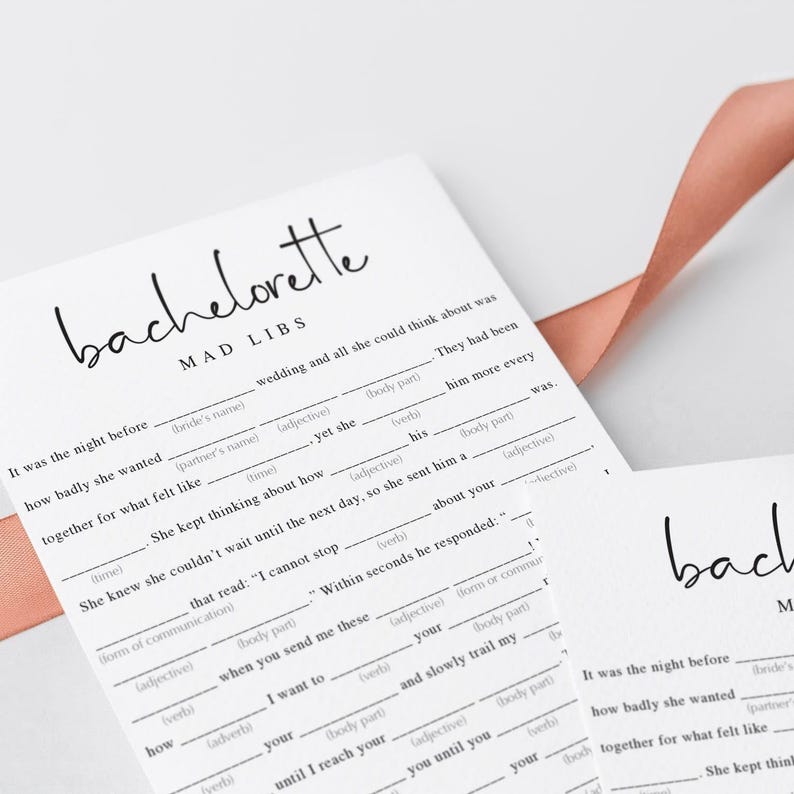 bachelorette
MAD LIBS
It was the night before ____________ wedding and all she could think about was
(bride's name)
how badly she wanted ____________ __________ ____________. They had been
(partner's name) (adjective) (body part)
together for what felt like ____________, yet she __________ him more every
(time) (verb)
__________. She kept thinking about how __________ his ____________ was.
(time) (adjective) (body part)
She knew she couldn't wait until the next day, so she sent him a ____________,
(adjective)
____________ that read: “I cannot stop ____________ about your ____________
(form of communication) (verb) (adjective)
____________ ____________.” Within seconds he responded: “
(adjective) (body part)
____________ when you send me these __________ ____________!
(verb) (adjective) (form or commun
how ____________ I want to __________ your ____________
(adverb) (verb)
____________ your ____________ and slowly trail my ____________
(verb) (body part) (body part)
____________ until I reach your __________ ____________.
(adverb) (adjective) (body part)
you until you ____________
(verb)
your
(body
bach
M
It was the night before ____________
(bride's
how badly she wanted ____________
(partner's
together for what felt like
____________. She kept think